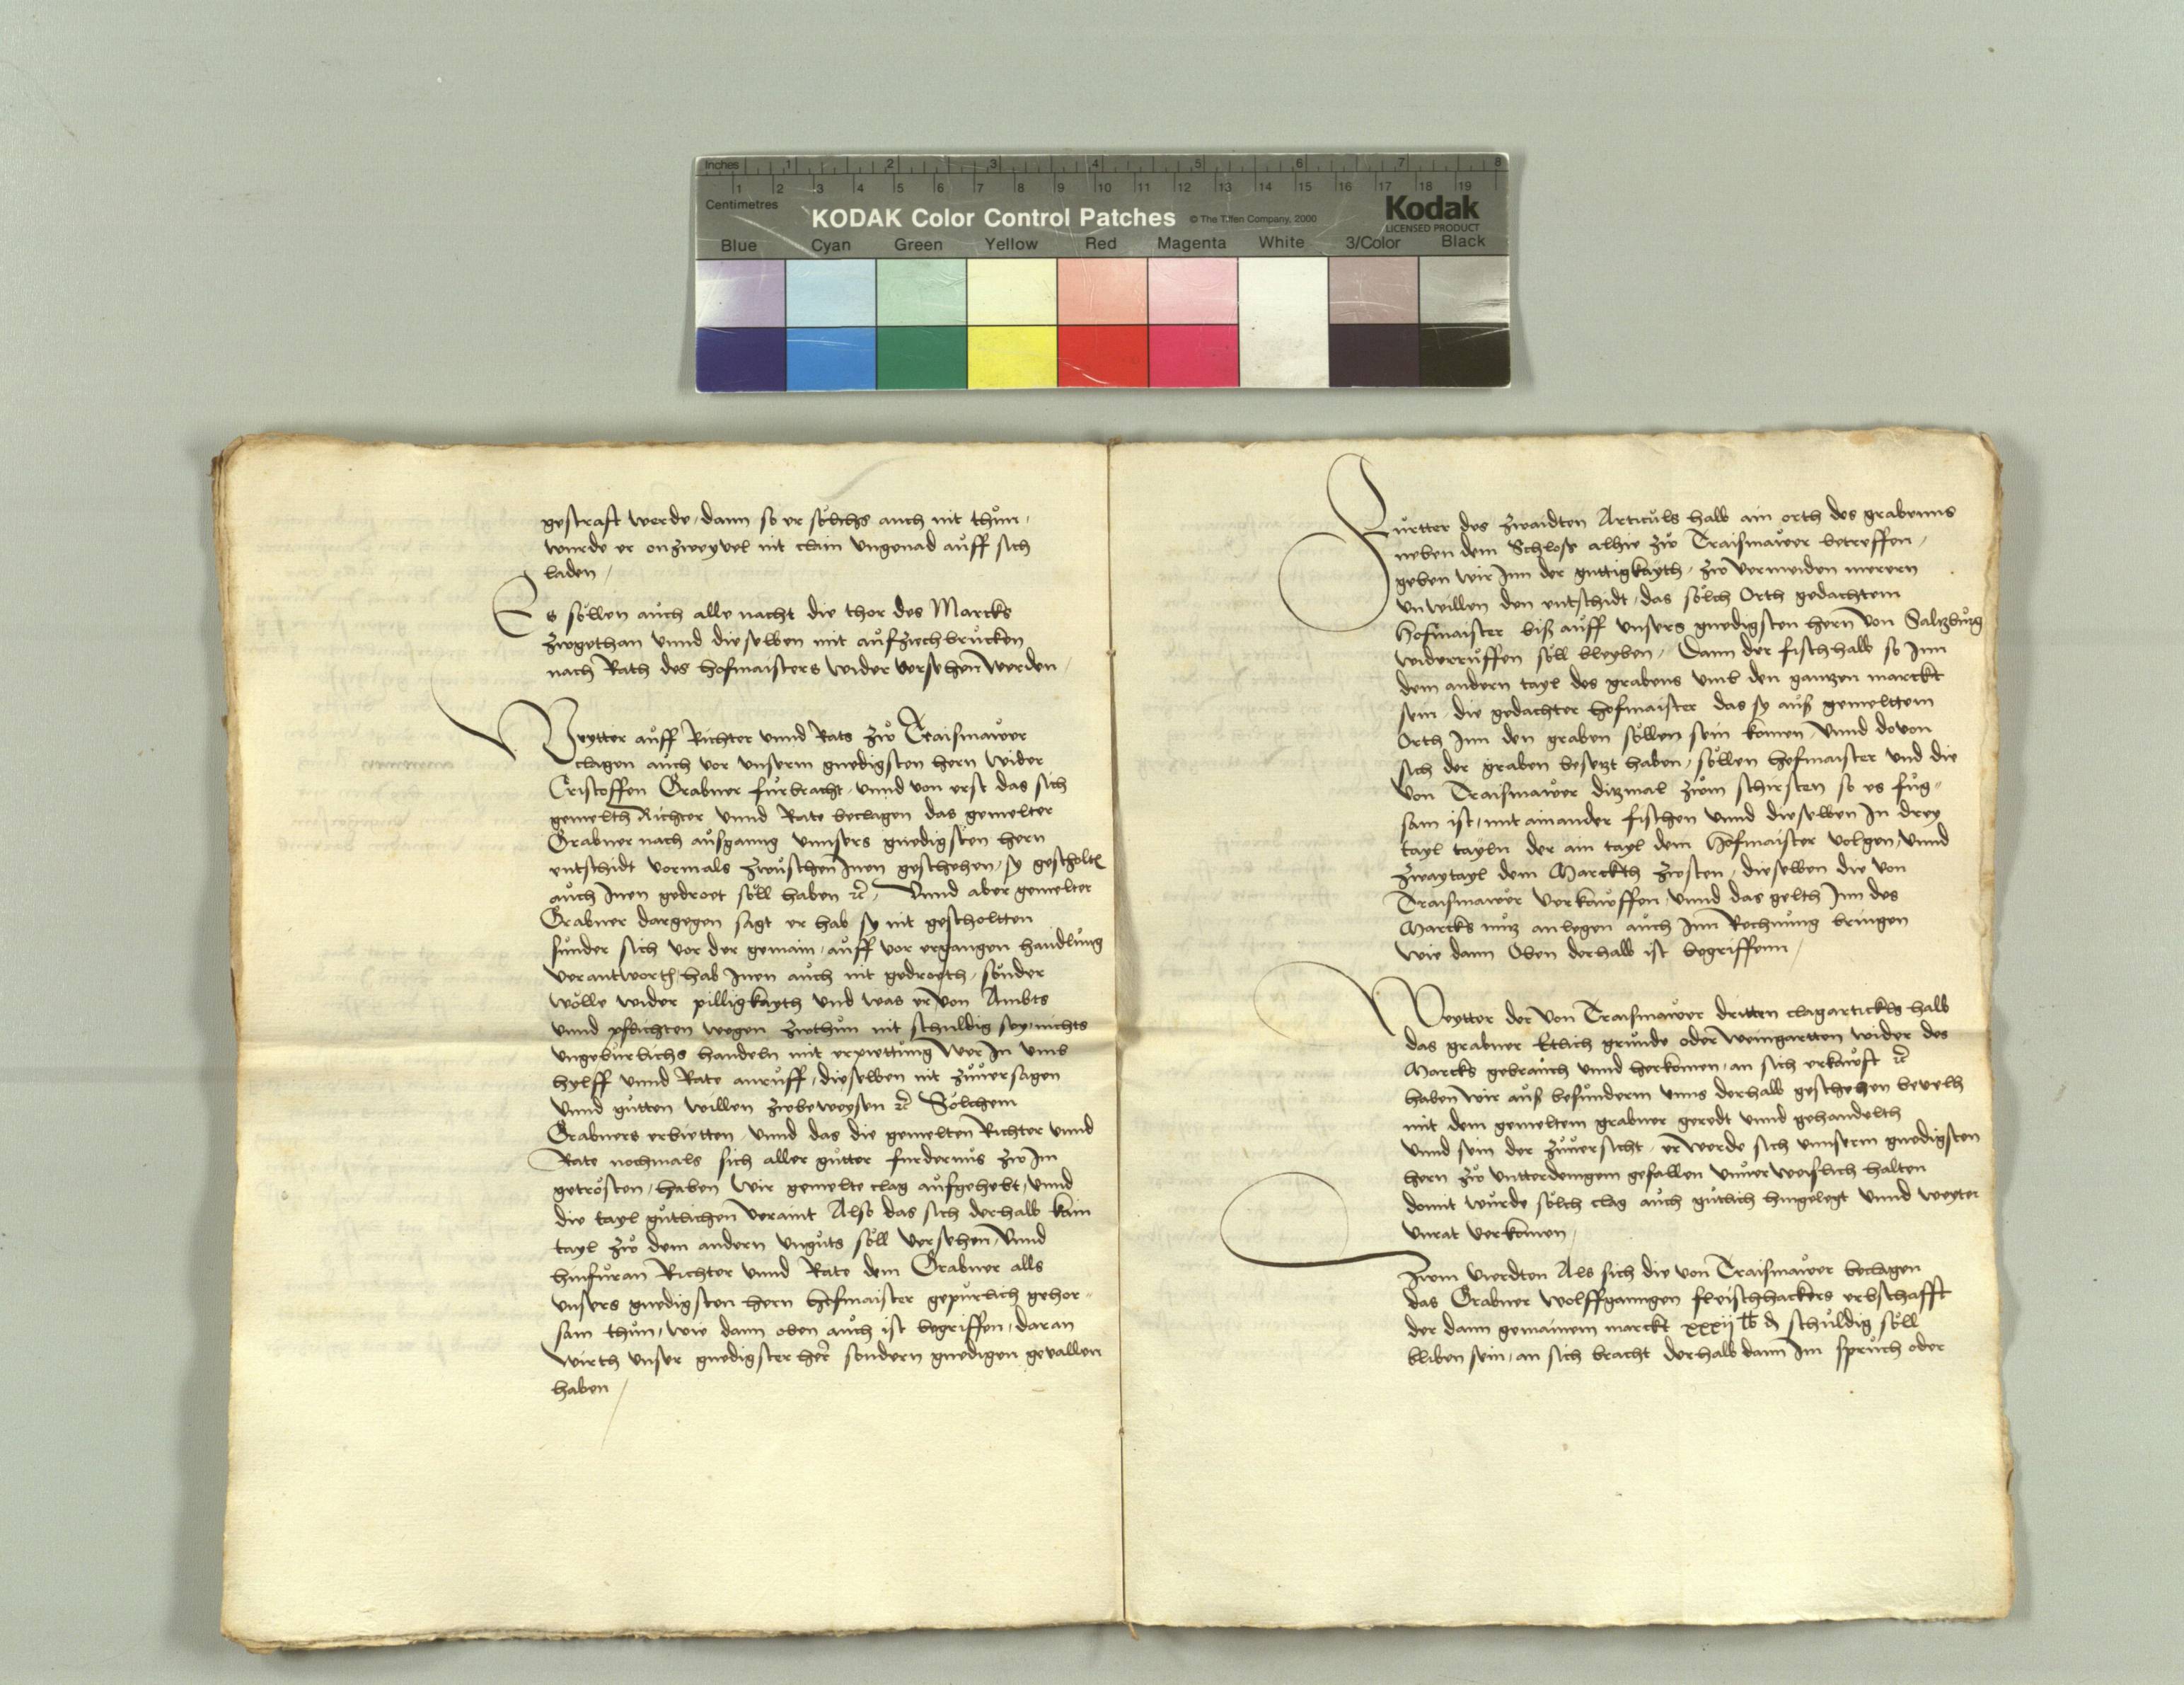 Inches 1 2 3 4 5 6 7 8
1 2 3 4 5 6 7 8 9 10 11 12 13 14 15 16 17 18 19
Centimetres
KODAK Color Control Patches © The Tiffen Company, 2000 Kodak
LICENSED PRODUCT
Blue Cyan Green Yellow Red Magenta White 3/Color Black
gestraft werde, dann so er sölchs auch nit thůn,
wurde er onzweyvel nit clain ungenad aůff sich
laden /
Es söllen aůch alle nacht die thor des Marcks
zwgethan unnd dieselben mit aůfziechbrůcken
nach Rath des hofmaisters wider versehen werden /
Weytter aůff Richter unnd Rats zw Traismawer
clagen aůch vor unserm gnedigsten hern wider
Cristoffen Grabner fůrbracht, unnd von erst das sich
gemelth Richter unnd Rate beclagen das gemelter
Grabner nach aůsganng unnsers gnedigsten hern
entschidt vormals zwůschen Inen geschehen, sy gescholtn
aůch Inen gedroet söll haben ꝛc, Unnd aber gemelter
Grabner dargegen sagt er hab sy nit gescholtten
sůnder sich vor der gemain, aůff vor ergangen handlůng
verantworth, hab Inen aůch nit gedroeth, sonder
wölle wider pilligkayth und was er von Ambts
unnd pflichten wegen zwthůn nit schuldig sey, nichts
ungebůrlichs handeln mit erpiettůng wer In umb
hylff unnd Rate anrůff, dieselben nit zůversagen
unnd gůtten willen zwbeweysen ꝛc Sölchem
Grabners erbietten, unnd das die gemelten Richter unnd
Rate nochmals sich aller gůtter furdernůs zw Im
getrösten, haben wir gemelte clag aůfgehebt, unnd
die tayl gůtlichen veraint Also das sich derhalb kain
tayl zw dem andern unguts söll versehen, Unnd
hinfůran Richter unnd Rate dem Grabner alls
unsers gnedigsten hern hofmaister gepurlich gehor-
sam thůn, wie dann oben aůch ist begriffen, daran
wirth unser gnedigster her sondern gnedigen gevallen
haben /
Fůrtter des zwaidten Articůls halb ain orth des grabenns
neben dem Schloss alhie zw Traismawer betreffen,
geben wir Inn der guttigkayth, zw vermeiden merern
unwillen den entschidt, das sölch Orth gedachtem
Hofmaister biß aůff unsers gnedigsten hern von Saltzburg
widerrůffen söll bleyben, Dann der fischhalb so Inn
dem andern tayl des grabens umb den gantzen marckt
sein, die gedachter hofmaister das sy aůß gemelttem
Orth Inn den graben söllen sein komen, unnd dovon
sich der graben besetzt haben, söllen hofmaister und die
von Traismawer ditzmal zům schirsten so es fůg-
sam ist, mit ainander fischen unnd dieselben In drey
tayl tayln der ain tayl dem Hofmaister volgen, unnd
zwaytayl dem Marckth zwsten, dieselben die von
Traismawer verkawffen, unnd das gelth Inn des
Marcks nůtz anlegen aůch Inn Rechnůng bringen
wie dann Oben derhalb ist begriffenn /
Weytter der von Traismawer dritten clagartickls halb
das grabner Etlich grůnde oder weingartten wider des
Marcks gebraůch unnd herkomen, an sich erkawft ꝛc
haben wir aůß besůnderm unns derhalb geschehen bevelh
mit dem gemeltem grabner geredt unnd gehandelth
unnd sein der zůversicht, er werde sich unnserm gnedigsten
hern zw untterdenigem gefallen unverweislich halten
domit wůrde sölch clag aůch gůtlich hingelegt unnd weyter
unrat verkomen /
Zwm vierdten Als sich die von Traismawer beclagen
das Grabner Wolffganngen fleischhackers erbschafft
der dann gemainem marckt xxxij lb d schůldig söll
bliben sein, an sich bracht derhalb dann Im sprůch oder